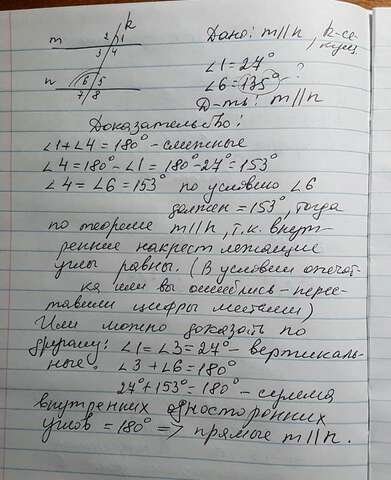 k
m 2 1 Дано: m∥n, k-се-
3 4 кущ.
∠1=27° ?
n 6 5 ∠6=135°
7 8 Д-ть: m∥n
Доказательство:
∠1+∠4=180°-смежные
∠4=180°-∠1=180°-27°=153°
∠4=∠6=153° по условию ∠6
должен=153°, тогда
по теореме m∥n, т.к. внут-
ренние накрест лежащие
углы равны. (В условии опечат-
ка или вы ошиблись-пере-
ставили цифры местами)
Или можно доказать по
другому: ∠1=∠3=27°-вертикаль-
ные. ∠3+∠6=180°
27°+153°=180°-сумма
внутренних односторонних
углов =180° => прямые m∥n.